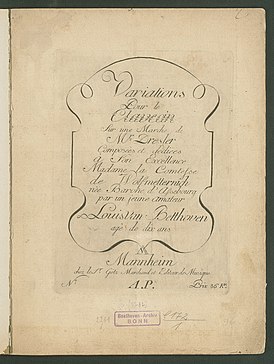 Variations
Pour le
Clavecin
Sur une Marche de
Mr. Dresler
Composées et dediées
à Son Excellence
Madame la Comtesse
de Wolfmetternich
née Baronne d'Assebourg
par un jeune amateur
Louis van Betthoven
agé de dix ans
Mannheim
chez le Sr. Götz Marchand et Editeur de Musique
No
A.P.
Prix 36 Kr.
Beethoven-Archiv
BONN